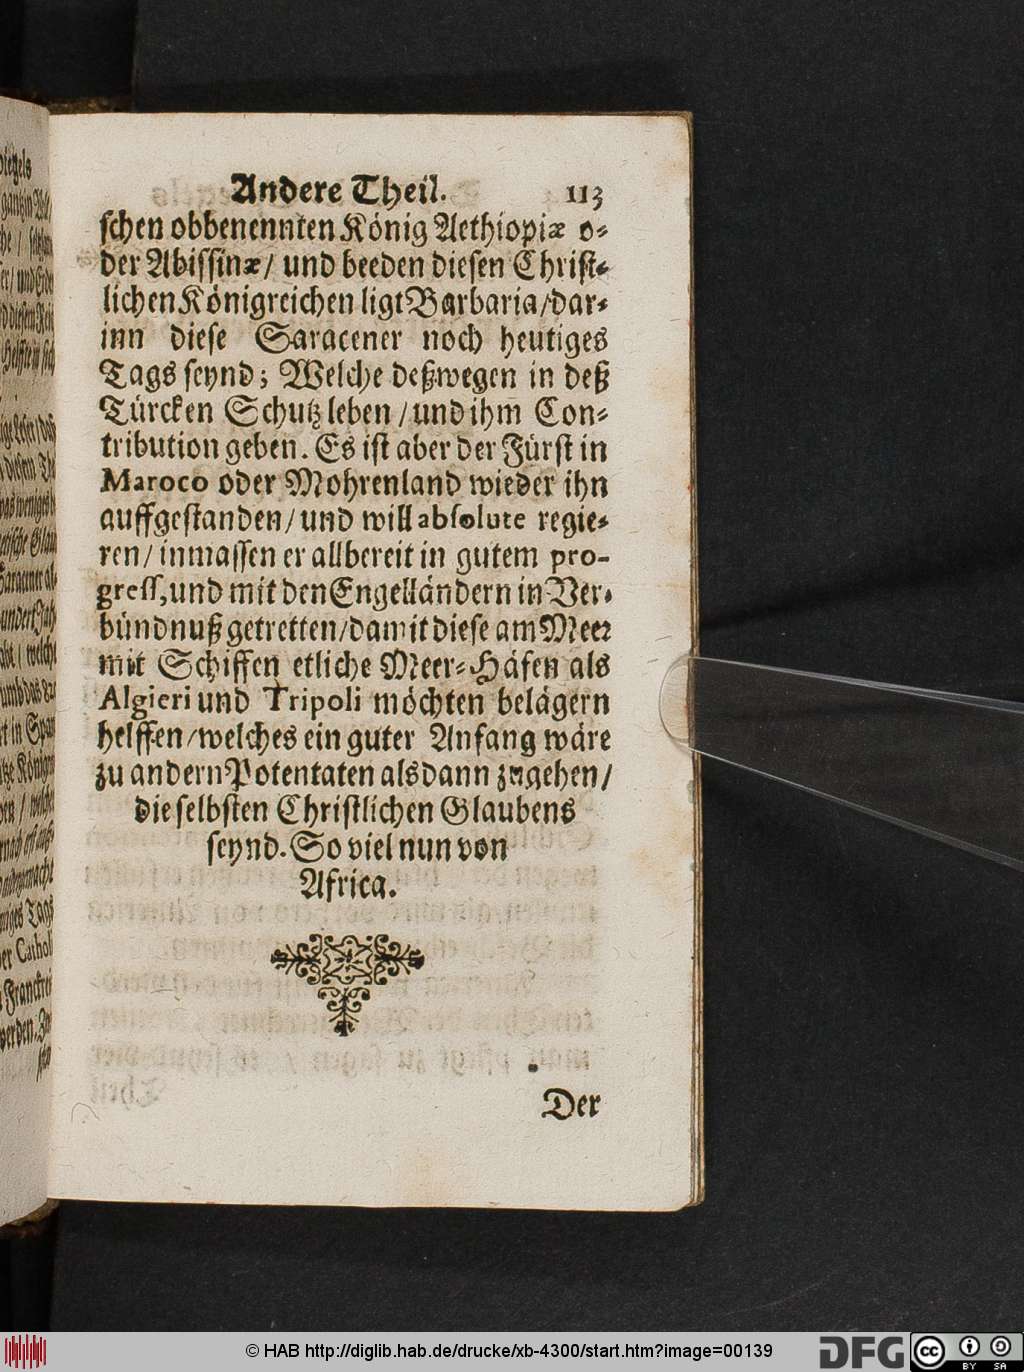 Andere Theil. 113
schen obbenennten König Aethiopiæ o-
der Abissinæ/ und beeden diesen Christ-
lichen Königreichen ligt Barbaria/dar-
inn diese Saracener noch heutiges
Tags seynd; Welche deßwegen in deß
Türcken Schutz leben / und ihm Con-
tribution geben. Es ist aber der Fürst in
Maroco oder Mohrenland wieder ihn
auffgestanden/ und will absolute regie-
ren/ inmassen er allbereit in gutem pro-
gress, und mit den Engelländern in Ver-
bündnuß getretten/damit diese am Meer
mit Schiffen etliche Meer-Häfen als
Algieri und Tripoli möchten belägern
helffen/welches ein guter Anfang wäre
zu andern Potentaten alsdann zugehen/
die selbsten Christlichen Glaubens
seynd. So viel nun von
Africa.
Der
© HAB http://diglib.hab.de/drucke/xb-4300/start.htm?image=00139
DFG
cc BY SA